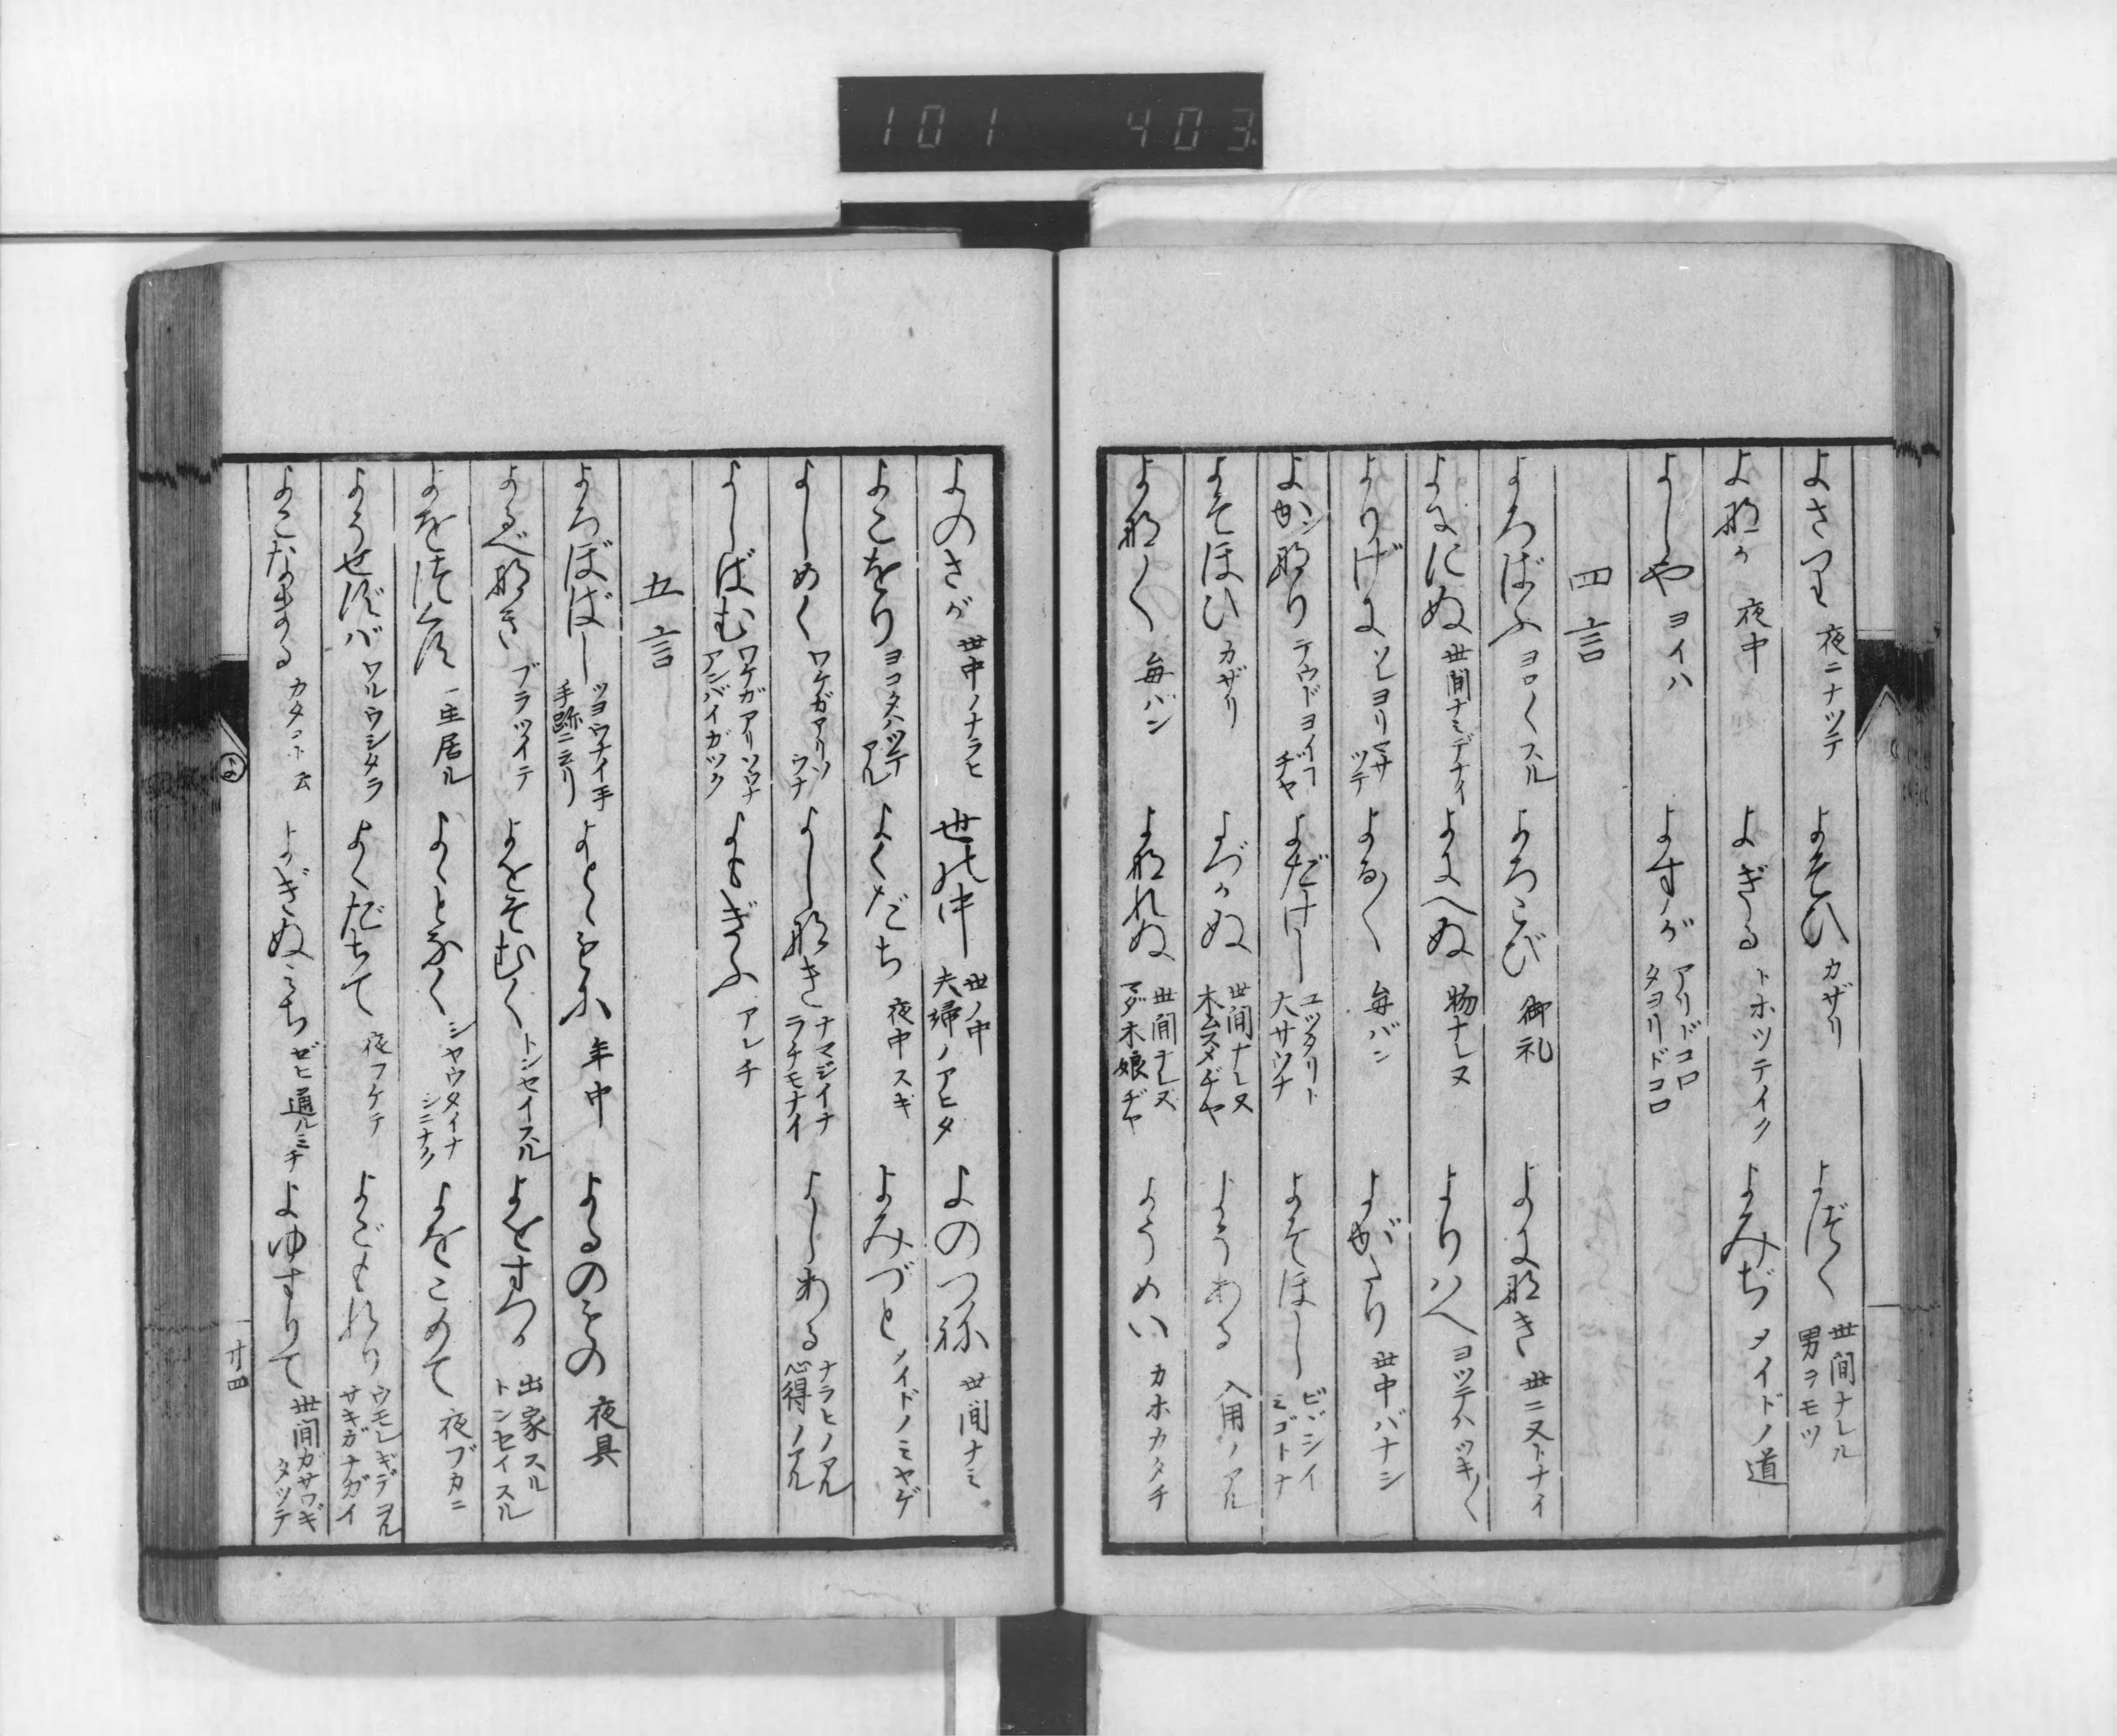 101 403
よさつて 夜ニナツテ よそひ カザリ よづく 世間ナレル 男ヲモツ
よなか 夜中 よぎる トホツテイク よみぢ メイドノ道
よしや ヨイハ よすが アリドコロ タヨリドコロ
四言
よろぼふ ヨロ〱スル よろこび 御礼 よになき 世ニ又トナイ
よににぬ 世間ナミデナイ よにへぬ 物ナレヌ よりはへ ヨツテハツキ〱
よりげに ソレヨリマサツテ よる〱 毎バン よがたり 世中バナシ
よかなり テウドヨイコヂヤ よだけし ユツタリト 大サウナ よそほし ビゞシイ ミゴトナ
よそほひ カザリ よづかぬ 世間ナレヌ 木ムスメヂヤ ようある 入用ノアル
よな〱 毎バン よなれぬ 世間ナレヌ マダ木娘ヂヤ ようめい カホカタチ
よのさが 世中ノナラヒ 世の中 世ノ中 夫婦ノアヒタ よのつね 世間ナミ
よこをり ヨコタハツテアル よくだち 夜中スギ よみづと メイドノミヤゲ
よしめく ワケガアリソウナ よしなき ナマジイナ ラチモナイ よしある ナラヒノアル 心得ノアル
よしばむ ワケガアリソウナ アンバイガツク よもぎふ アレチ
五言
よろぼぼし ツヨウナイ手 手跡ニ云リ よとゝもに 年中 よるのもの 夜具
よるべなき ブラツイテ よをそむく トンセイスル よをすつる 出家スル トンセイスル
よをつくす 一生居ル よゝとなく シヤウタイナシニナク よをこめて 夜ブカニ
ようせずバ ワルウシタラ よくだちて 夜フケテ よごもれり ウモレギデヲル サキガナガイ
よこなまる カタコト云 よぎぬみち ゼヒ通ルミチ よゆすりて 世間ガサワギタツテ
よ
廿四